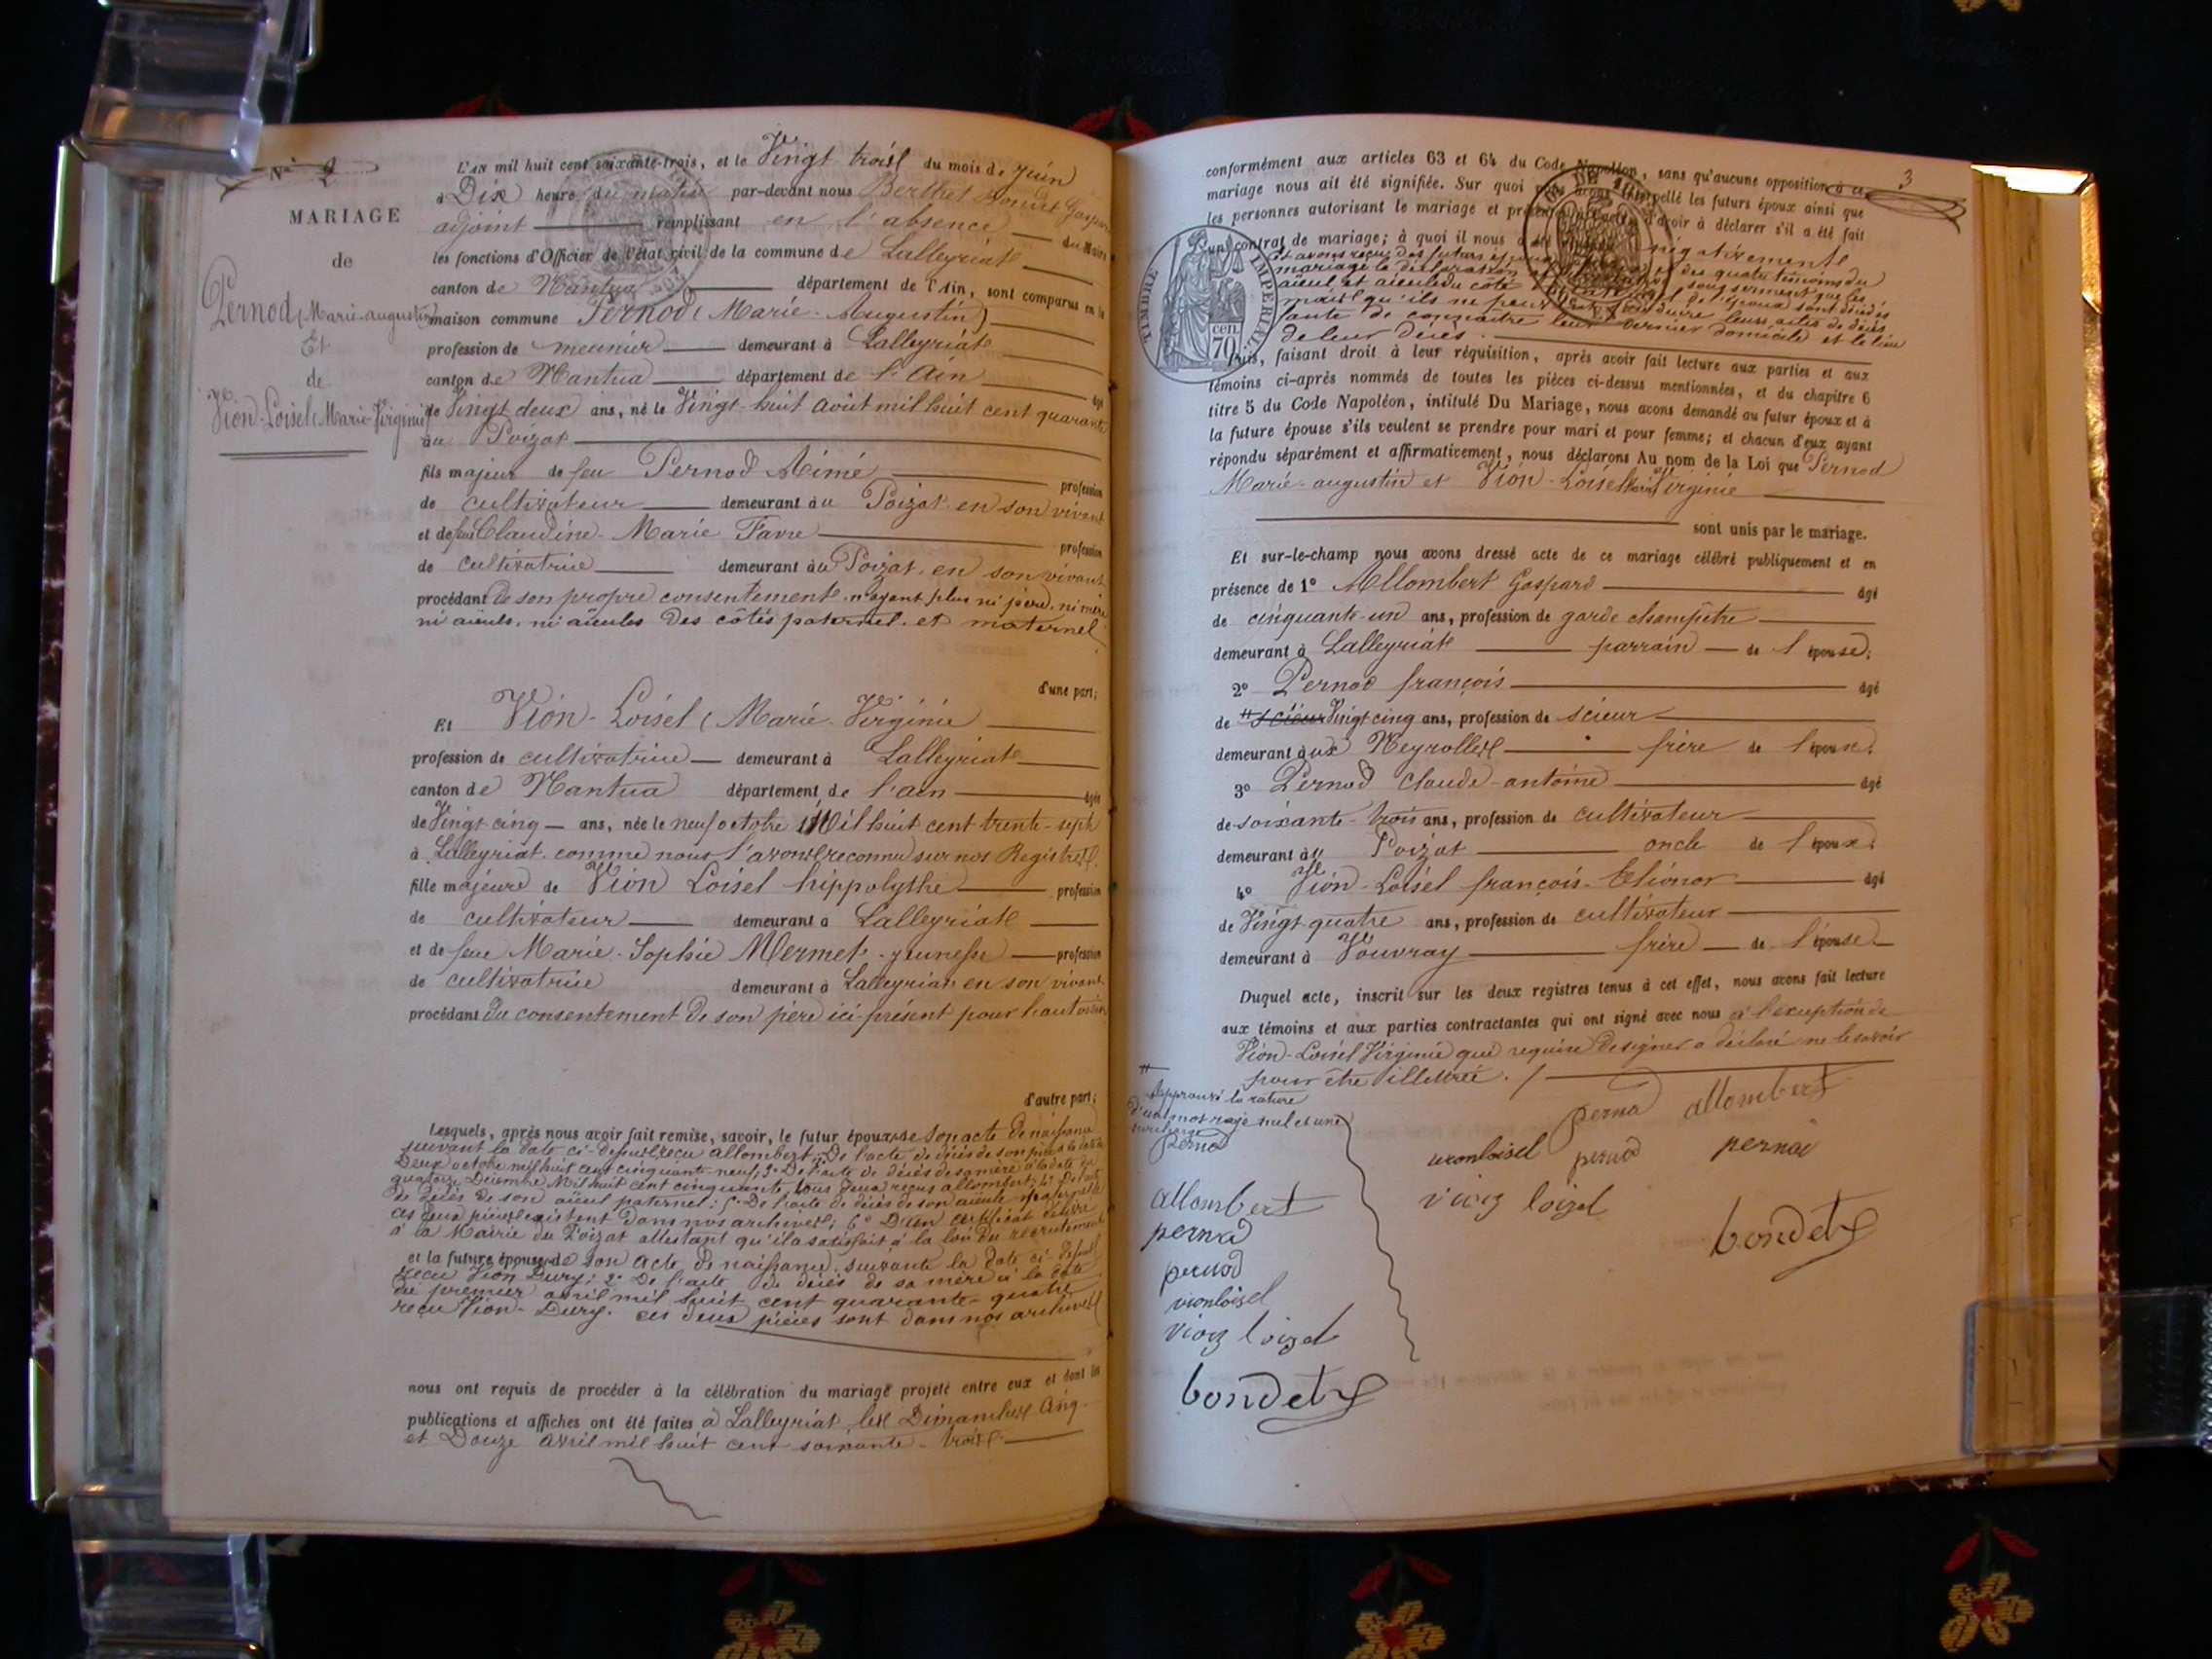 N° 2
MARIAGE
de
Pernod (Marie-augustin)
Et
de
Vion-Loisel (Marie Virginie)
L'AN mil huit cent soixante-trois, et le Vingt trois du mois de Juin
à Dix heure du matin par-devant nous Berthet Bondet Gaspard
adjoint remplissant en l'absence du Maire
les fonctions d'Officier de l'état civil de la commune de Lalleyriat
canton de Nantua département de l'Ain, sont comparus en la
maison commune Pernod (Marie-Augustin)
profession de meunier demeurant à Lalleyriat
canton de Nantua département de l'Ain âgé
de Vingt deux ans, né le Vingt-huit Août mil huit cent quarante
au Poizat
fils majeur de feu Pernod Aimé profession
de cultivateur demeurant au Poizat en son vivant
et de feue Claudine-Marie Favre profession
de cultivatrice demeurant au Poizat en son vivant
procédant de son propre consentement n'ayant plus ni père, ni mère
ni aïeuls, ni aïeules des côtés paternel et maternel
d'une part;
Et Vion-Loisel (Marie-Virginie
profession de cultivatrice demeurant à Lalleyriat
canton de Nantua département de l'ain âgée
de Vingt cinq ans, née le neuf octobre Mil huit cent trente-sept
à Lalleyriat comme nous l'avons reconnu sur nos Registres
fille majeure de Vion Loisel hippolythe profession
de cultivateur demeurant à Lalleyriat
et de feue Marie-Sophie Mermet-jeunesse profession
de cultivatrice demeurant à Lalleyriat en son vivant
procédant du consentement de son père ici présent pour l'autoriser
d'autre part;
Lesquels, après nous avoir fait remise, savoir, le futur époux, de son acte de naissance
suivant la date ci-dessus reçu Allombert; De l'acte de décès de son père à la date du
Deux octobre mil huit cent cinquante-neuf; 3° De l'acte de décès de sa mère à la date du
quatorze Décembre Mil huit cent cinquante, tous deux reçus allombert; 4° De l'acte
de décès de son aïeul paternel; 5° De l'acte de décès de son aïeule maternelle
ces deux pièces existent dans nos archives; 6° D'un certificat délivré
à la Mairie du Poizat attestant qu'il a satisfait à la loi du recrutement
et la future épouse, de son acte de naissance suivante la date ci-dessus
reçu Vion Dury; 2° De l'acte de décès de sa mère à la date
du premier avril mil huit cent quarante-quatre
reçu Vion-Dury. ces deux pièces sont dans nos archives
nous ont requis de procéder à la célébration du mariage projeté entre eux et dont les
publications et affiches ont été faites à Lalleyriat les Dimanches Cinq
et Douze avril mil huit cent soixante-trois
3
conformément aux articles 63 et 64 du Code Napoléon, sans qu'aucune opposition à ce
mariage nous ait été signifiée. Sur quoi nous avons interpellé les futurs époux ainsi que
les personnes autorisant le mariage et présentes d'avoir à déclarer s'il a été fait
un contrat de mariage; à quoi il nous a été négativement
et avons reçu des futurs époux et des quatre témoins du
mariage la déclaration sous serment que les
aïeul et aïeule du côté de l'époux sont décédés
mais qu'ils ne peuvent produire leurs actes de décès
faute de connaître leur dernier domicile et le lieu
de leur décès.
TIMBRE IMPERIAL
70 cen
Puis, faisant droit à leur réquisition, après avoir fait lecture aux parties et aux
témoins ci-après nommés de toutes les pièces ci-dessus mentionnées, et du chapitre 6
titre 5 du Code Napoléon, intitulé Du Mariage, nous avons demandé au futur époux et à
la future épouse s'ils veulent se prendre pour mari et pour femme; et chacun d'eux ayant
répondu séparément et affirmativement, nous déclarons Au nom de la Loi que Pernod
Marie-augustin et Vion-Loisel Marie Virginie
sont unis par le mariage.
Et sur-le-champ nous avons dressé acte de ce mariage célébré publiquement et en
présence de 1° Allombert Gaspard âgé
de cinquante-un ans, profession de garde champêtre
demeurant à Lalleyriat parrain de l'épouse;
2° Pernod françois âgé
de scieur Vingt cinq ans, profession de scieur
demeurant aux Neyrolles frère de l'époux;
3° Pernod Claude-antoine âgé
de soixante-trois ans, profession de cultivateur
demeurant au Poizat oncle de l'époux;
4° Vion-Loisel françois-Eléonor âgé
de Vingt quatre ans, profession de cultivateur
demeurant à Vouvray frère de l'épouse
Duquel acte, inscrit sur les deux registres tenus à cet effet, nous avons fait lecture
aux témoins et aux parties contractantes qui ont signé avec nous à l'exception de
Vion-Loisel Virginie que requise de signer a déclaré ne le savoir
pour être illettrée.
Approuvé la rature
d'un mot rayé nul et une
surcharge
pernod
allombert
pernod
pernod
vionloisel
vion loizel
bondet
pernod allombert
vionloisel pernod pernod
vion loizel
bondet